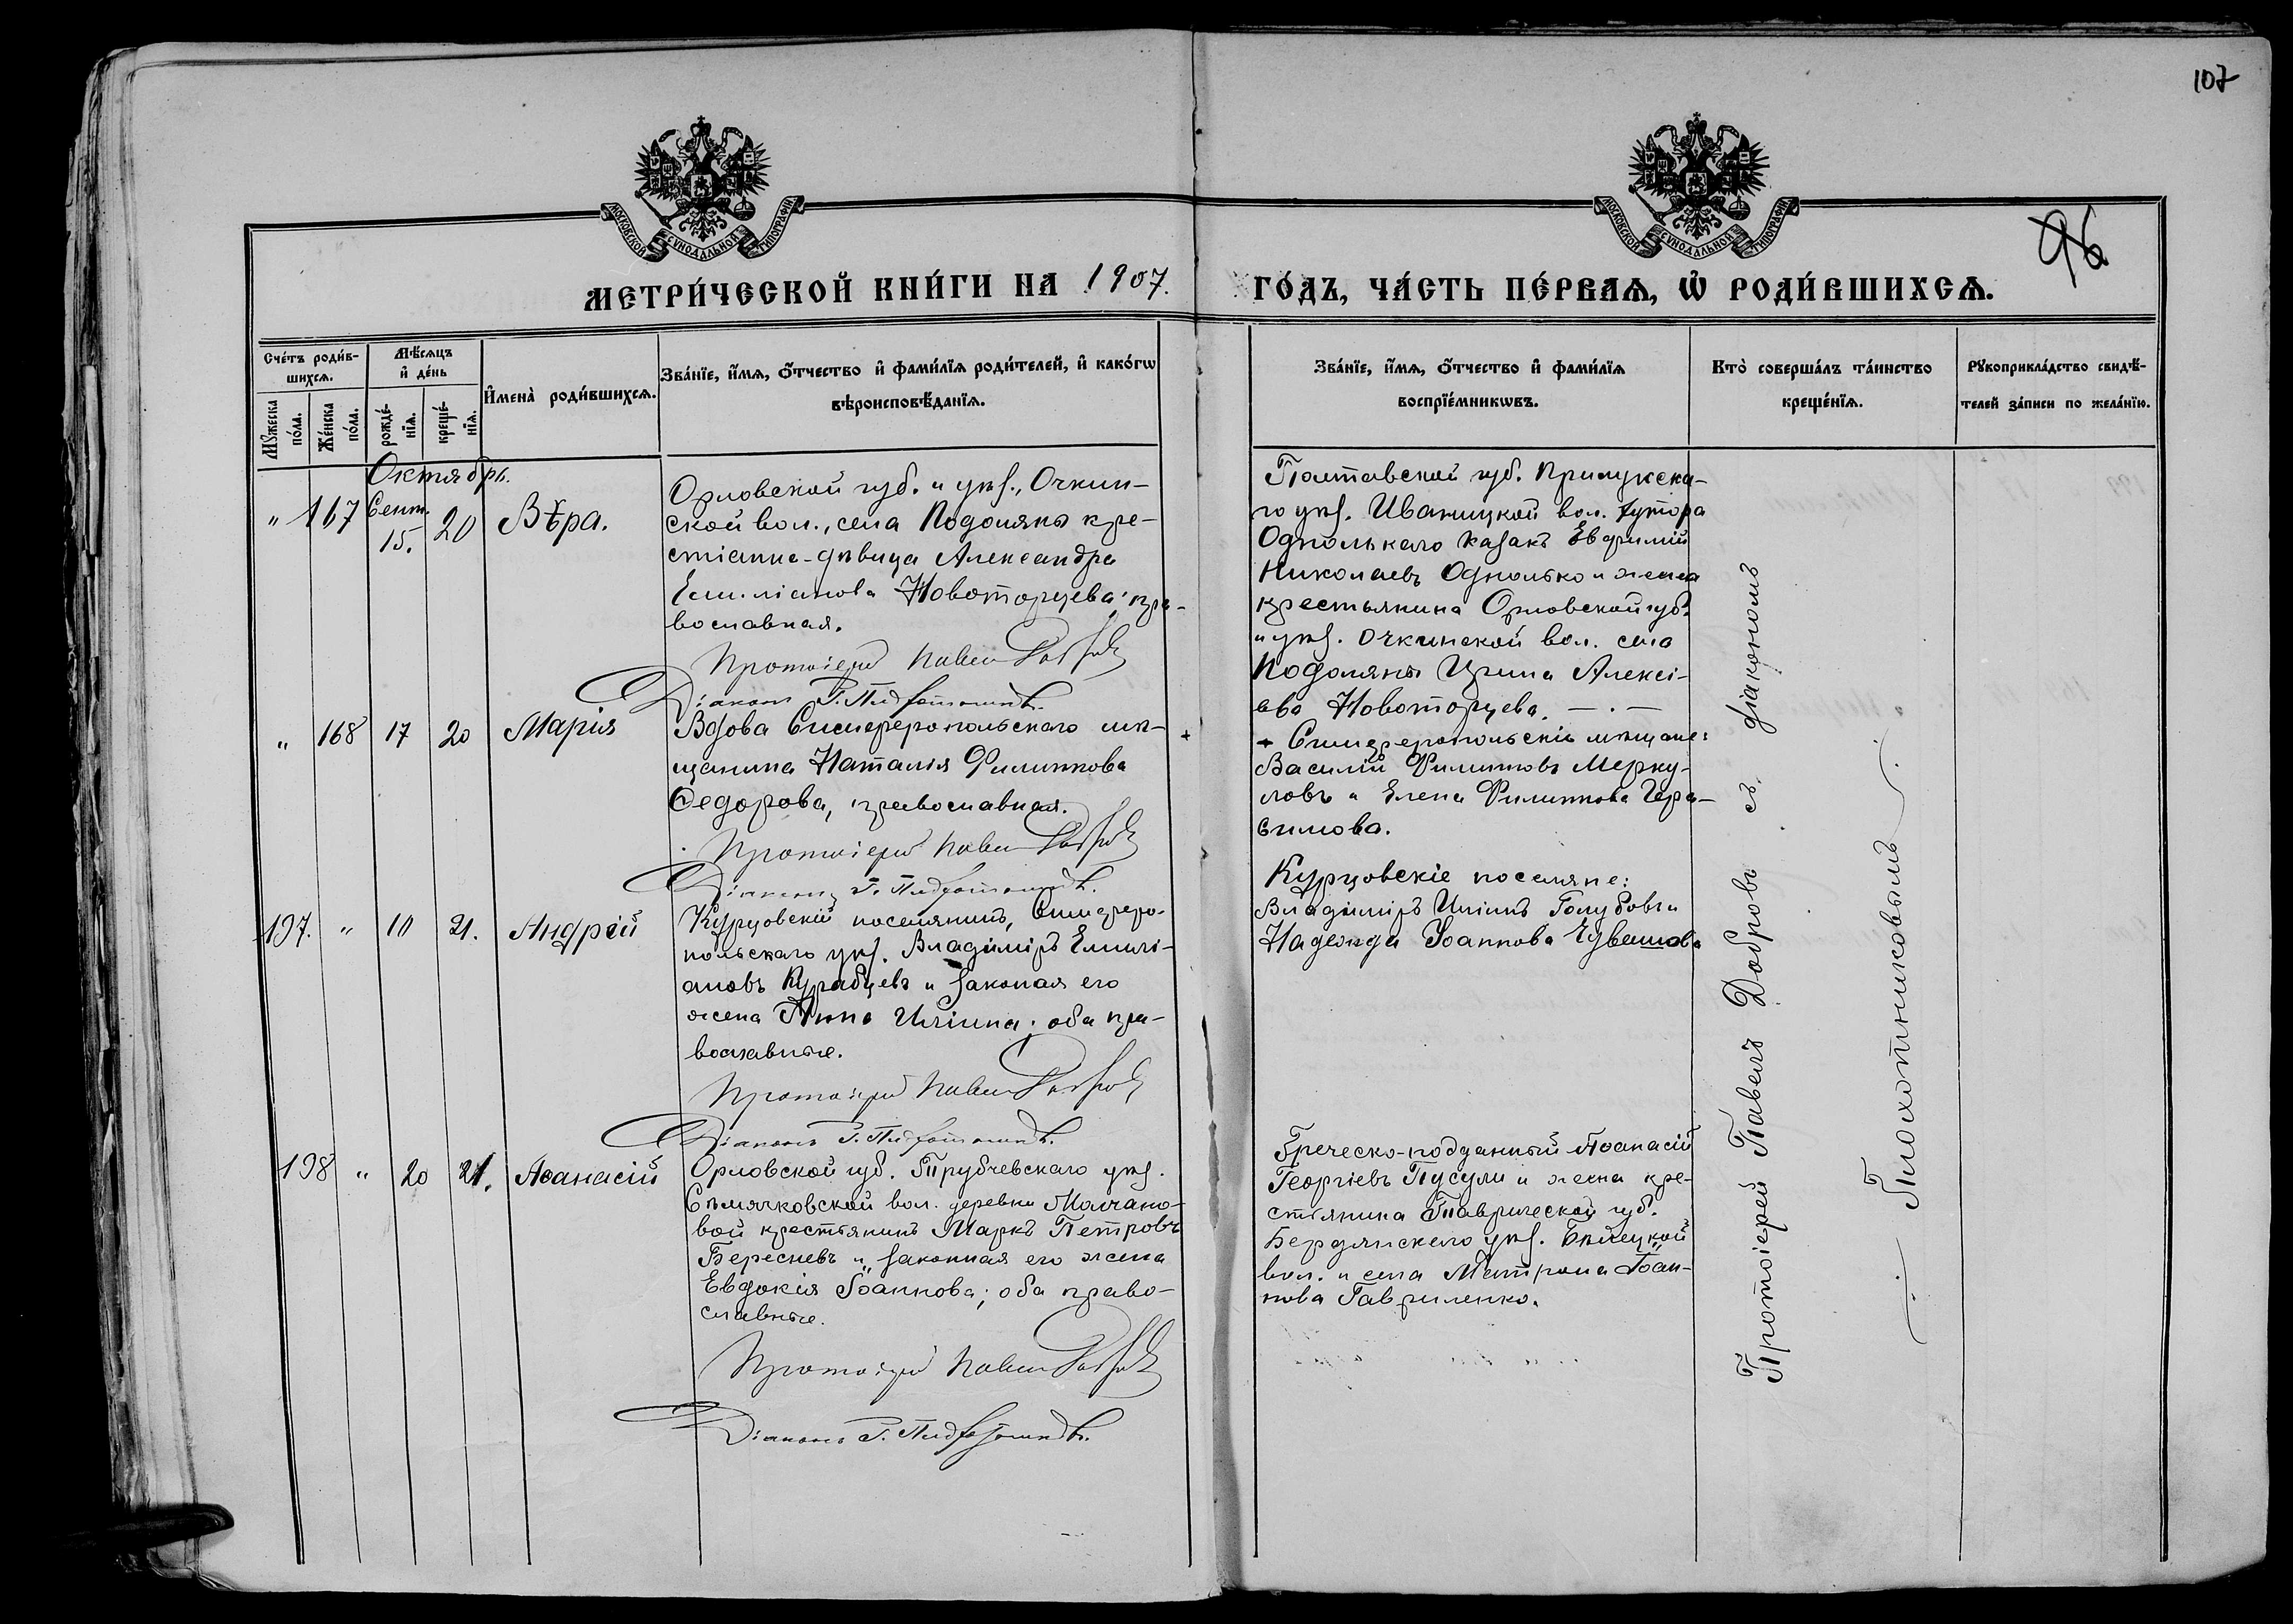 107
МОСКОВСКОЙ СѴНОДАЛЬНОЙ ТИПОГРАФІИ
МОСКОВСКОЙ СѴНОДАЛЬНОЙ ТИПОГРАФІИ
96
МЕТРИ́ЧЕСКОЙ КНИ́ГИ НА 1907.
ГО́ДЪ, ЧА́СТЬ ПЕ́РВАѦ, Ѡ҆ РОДИ́ВШИХСѦ.
Сче́тъ роди́в-
шихсѧ.
Мѣ́сѧцъ
и҆ де́нь
И҆мена̀ роди́вшихсѧ.
Зва́нїе, и҆́мѧ, ѻ҆́тчество и҆ фами́лїѧ роди́телей, и҆ како́гѡ
вѣроисповѣ́данїѧ.
Мꙋ́жеска
по́ла.
Же́нска
по́ла.
рожде́-
нїѧ.
креще́-
нїѧ.
Зва́нїе, и҆́мѧ, ѻ҆́тчество и҆ фами́лїѧ
воспрїе́мникѡвъ.
Кто̀ соверша́лъ та́инство
креще́нїѧ.
Рꙋкоприкла́дство свидѣ́-
телей за́писи по жела́нїю.
Октябрь.
" 167 Сент. 15. 20 Вѣра.
Орловской губ. и уѣз., Очкин-
ской вол., села Подоляны кре-
стіанка-дѣвица Александра
Емиліанова Новоторцева; пра-
вославная.
Протоіерей Павелъ Добровъ
Діаконъ Г. Плохотниковъ.
Полтавской губ. Прилукска-
го уѣз. Иваницкой вол. хутора
Однолькаго казакъ Евфимій
Николаевъ Однолько и жена
крестьянина Орловской губ.
и уѣз. Очкинской вол. села
Подоляны Ирина Алексі-
ева Новоторцева. — . —
" 168 17 20 Марія
Вдова Симферопольскаго мѣ-
щанина Наталія Филиппова
Федорова, православная.
Протоіерей Павелъ Добровъ
Діаконъ Г. Плохотниковъ.
+ Симферопольскіе мѣщане:
Василій Филипповъ Мерку-
ловъ и Елена Филиппова Гера-
симова.
197. " 10 21. Андрей
Курцовскій поселянинъ, Симферо-
польскаго уѣз. Владиміръ Емилі-
ановъ Курабцевъ и законая его
жена Анна Иліина; оба пра-
вославные.
Протоіерей Павелъ Добровъ
Діаконъ Г. Плохотниковъ.
Курцовскіе поселяне:
Владиміръ Иліинъ Голубовъ и
Надежда Іоаннова Чувашова
198 " 20 21. Аѳанасій
Орловской губ. Трубчевскаго уѣз.
Сѣмячковской вол. деревни Молчано-
вой крестьянинъ Маркъ Петровъ
Бересневъ и законная его жена
Евдокія Іоаннова; оба право-
славные.
Протоіерей Павелъ Добровъ
Діаконъ Г. Плохотниковъ.
Греческо-подданный Аѳанасій
Георгіевъ Пусули и жена кре-
стьянина Таврической губ.
Бердянскаго уѣз.
вол. и села Матрона Іоан-
нова Гавриленко.
Протоіерей Павелъ Добровъ съ діакономъ
Плохотниковымъ